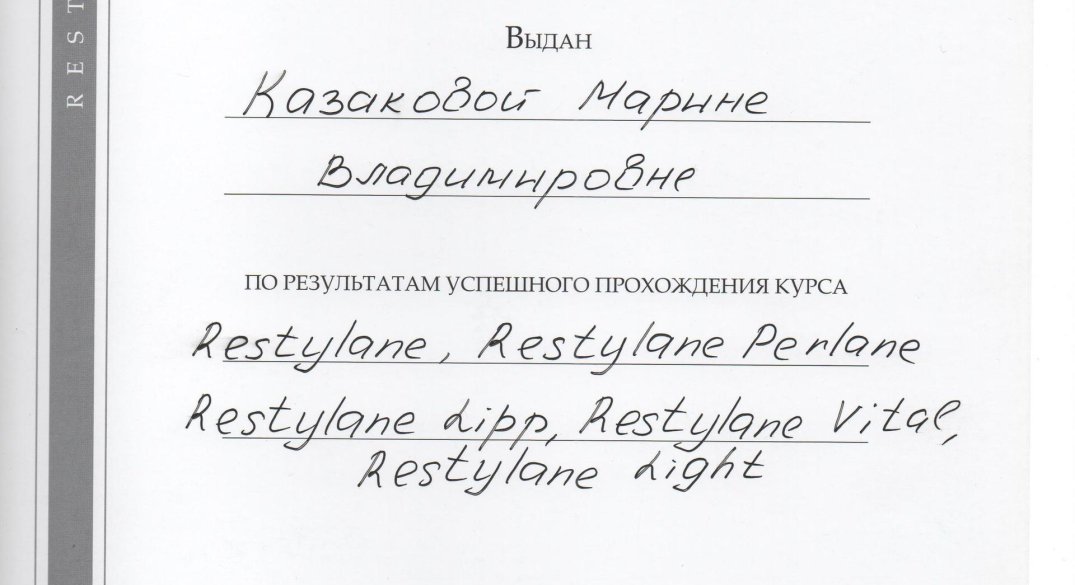 REST
Выдан
Казаковой Марине
Владимировне
по результатам успешного прохождения курса
Restylane, Restylane Perlane
Restylane Lipp, Restylane Vital,
Restylane Light